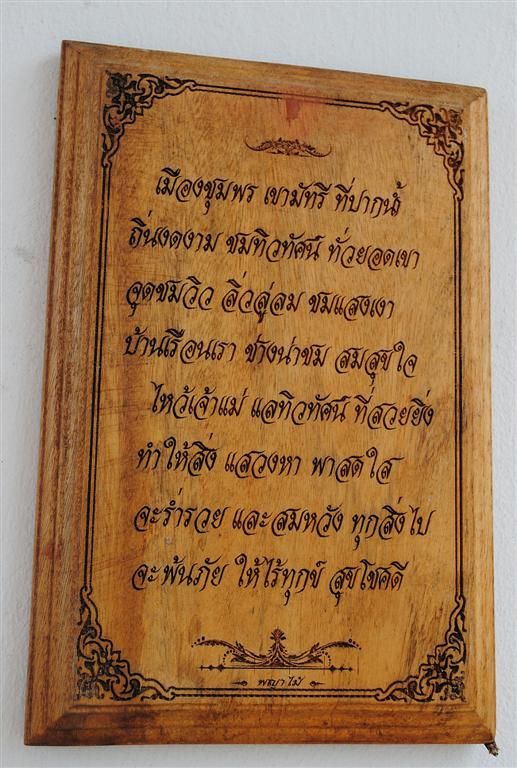 เมืองชุมพร เขามัทรี ที่ปากน้ำ
ถิ่นงดงาม ชมทิวทัศน์ ทั่วยอดเขา
จุดชมวิว ลิ่วลู่ลม ชมแสงเงา
บ้านเรือนเรา ช่างน่าชม สมสุขใจ
ไหว้เจ้าแม่ แลทิวทัศน์ ที่สวยยิ่ง
ทำให้สิ่ง แสวงหา พาสดใส
จะร่ำรวย และสมหวัง ทุกสิ่งไป
จะพ้นภัย ให้ไร้ทุกข์ สุขโชคดี